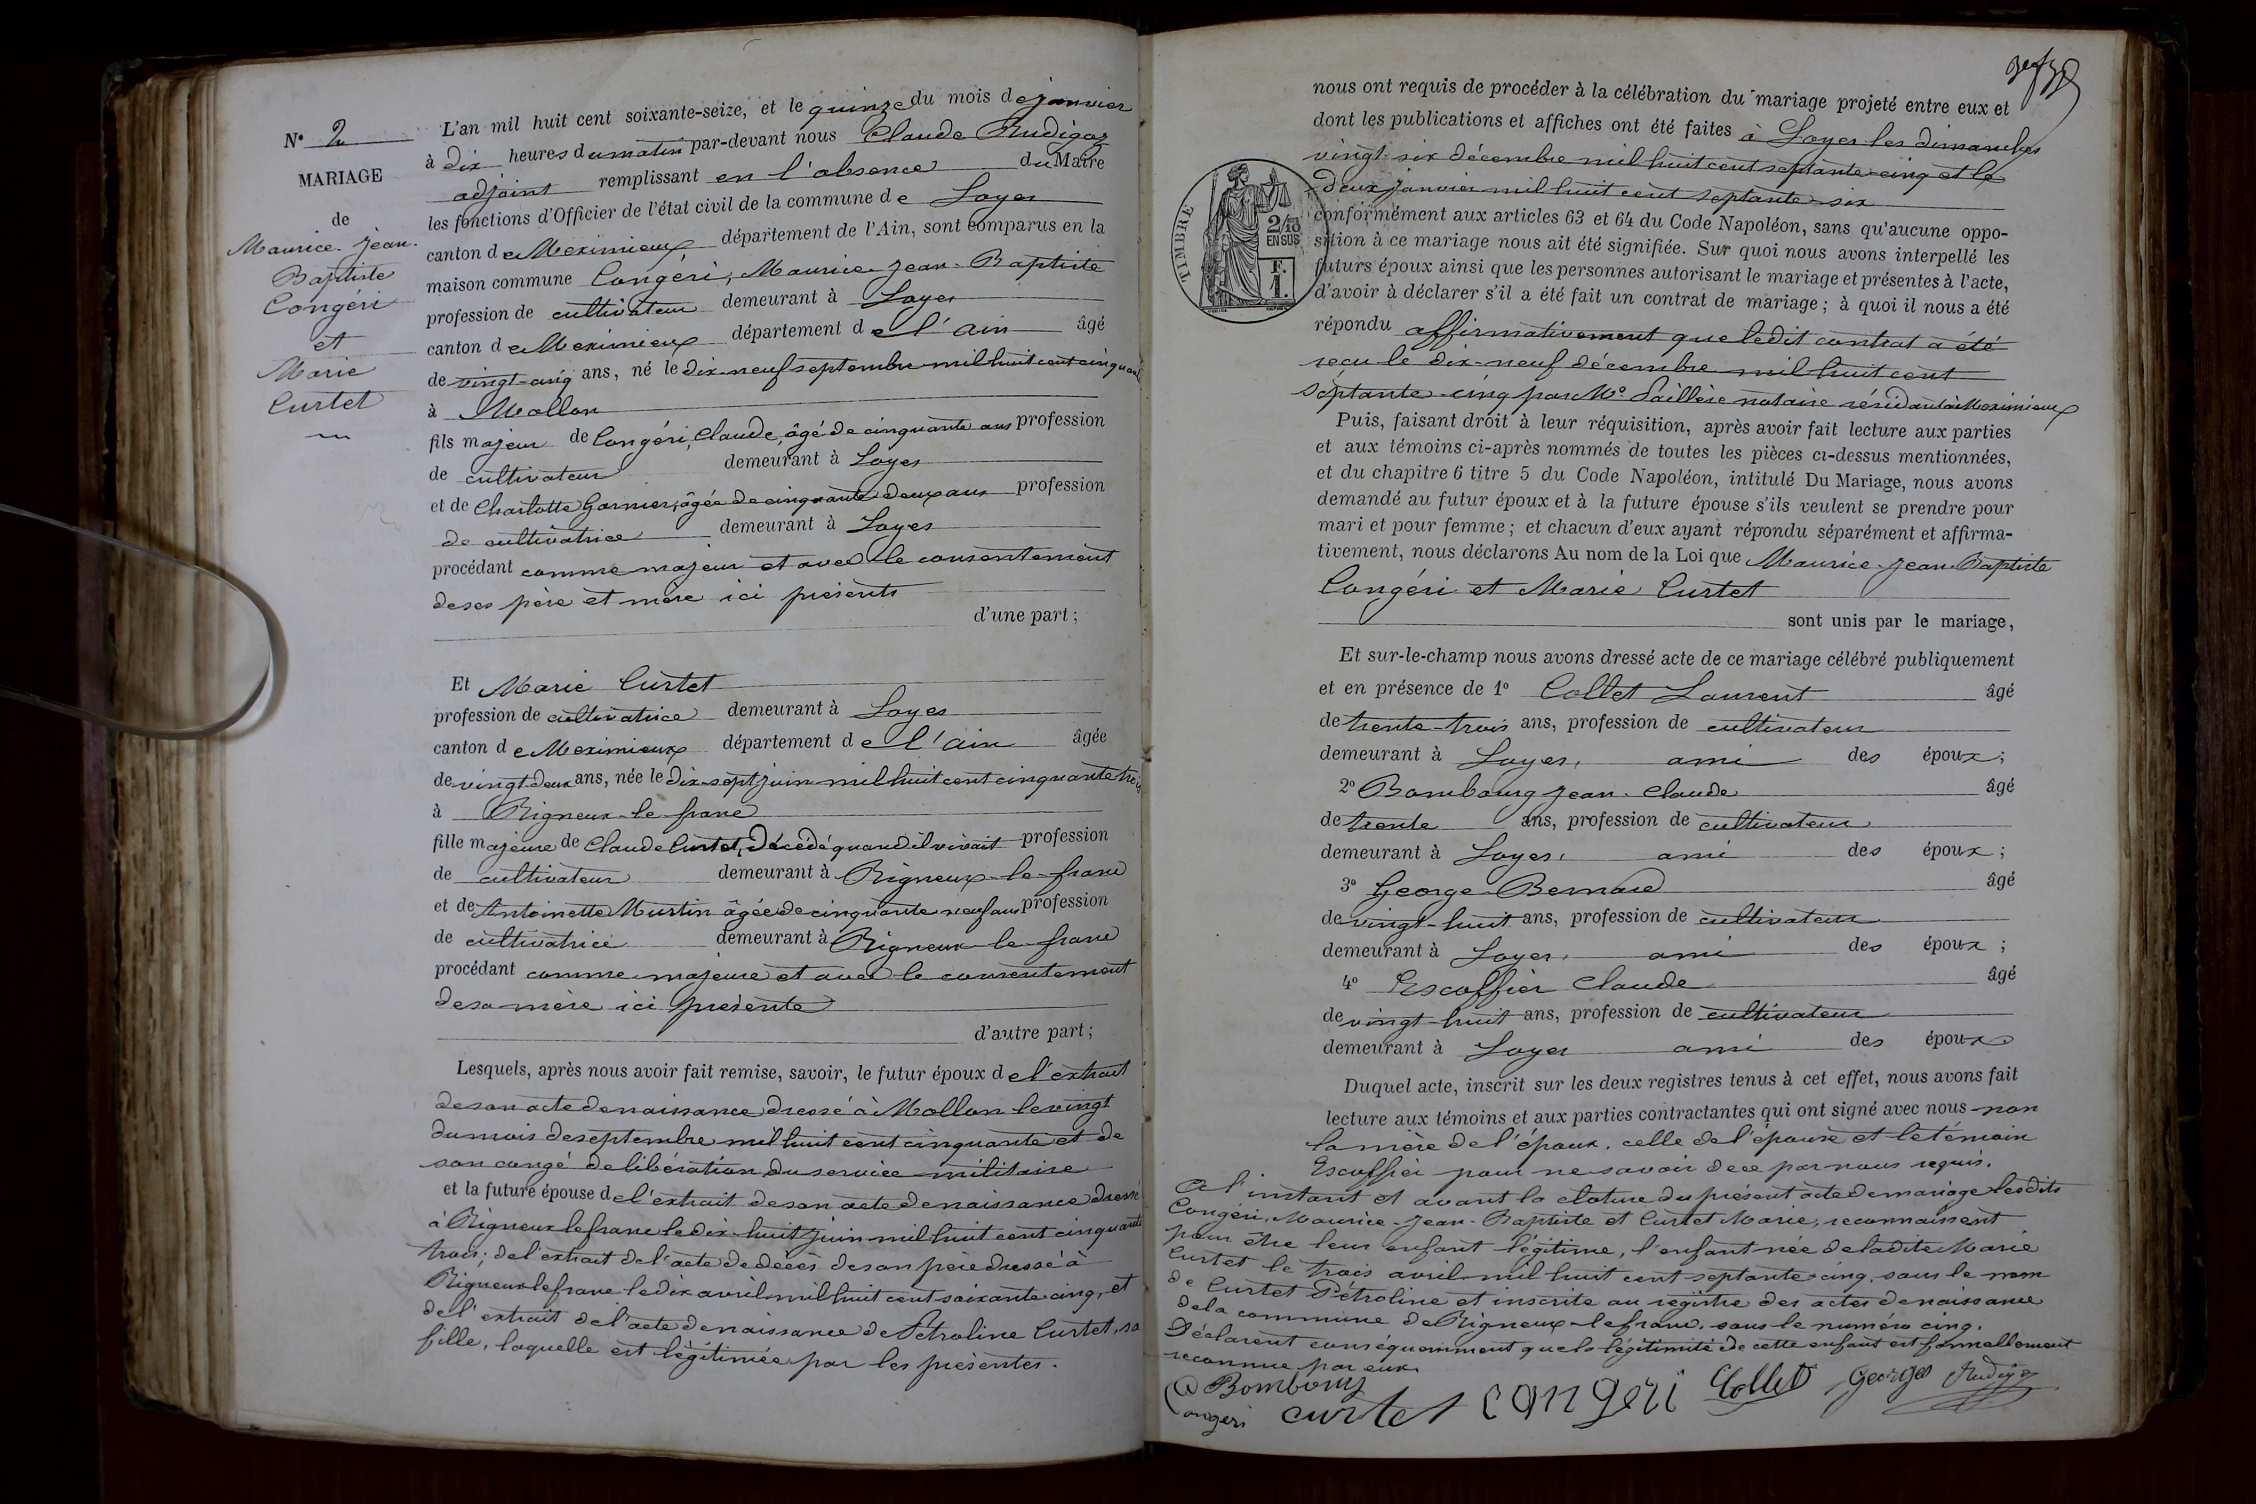 N° 2
MARIAGE
de
Maurice-Jean-
Baptiste
Congéri
et
Marie
Curtet
L'an mil huit cent soixante-seize, et le quinze du mois de janvier
à dix heures du matin par-devant nous Claude Rudigoz
adjoint remplissant en l'absence du Maire
les fonctions d'Officier de l'état civil de la commune de Loyes
canton de Meximieux département de l'Ain, sont comparus en la
maison commune Congéri, Maurice-Jean-Baptiste
profession de cultivateur demeurant à Loyes
canton de Meximieux département de l'ain âgé
de vingt-cinq ans, né le dix-neuf septembre mil huit cent cinquante
à Mollon
fils majeur de Congéri, Claude, âgé de cinquante ans profession
de cultivateur demeurant à Loyes
et de Charlotte Garnier, âgée de cinquante deux ans profession
de cultivatrice demeurant à Loyes
procédant comme majeur et avec le consentement
de ses père et mère ici présents
d'une part;
Et Marie Curtet
profession de cultivatrice demeurant à Loyes
canton de Meximieux département de l'ain âgée
de vingt-deux ans, née le dix-sept juin mil huit cent cinquante trois
à Rigneux-le-franc
fille majeure de Claude Curtet, décédé quand il vivait profession
de cultivateur demeurant à Rigneux-le-franc
et de Antoinette Murtin âgée de cinquante neuf ans profession
de cultivatrice demeurant à Rigneux-le-franc
procédant comme majeure et avec le consentement
de sa mère ici présente
d'autre part;
Lesquels, après nous avoir fait remise, savoir, le futur époux de l'extrait
de son acte de naissance dressé à Mollon le vingt
du mois de septembre mil huit cent cinquante et de
son congé de libération du service militaire
et la future épouse de l'extrait de son acte de naissance dressé
à Rigneux le franc le dix-huit juin mil huit cent cinquante
trois; de l'extrait de l'acte de décès de son père dressé à
Rigneux le franc le dix avril mil huit cent soixante cinq, et
de l'extrait de l'acte de naissance de Pétroline Curtet, sa
fille, laquelle est légitimée par les présentes.
TIMBRE
2/10
EN SUS
F.
1.
nous ont requis de procéder à la célébration du mariage projeté entre eux et
dont les publications et affiches ont été faites à Loyes les dimanches
vingt-six décembre mil huit cent septante-cinq et le
deux janvier mil huit cent septante-six
conformément aux articles 63 et 64 du Code Napoléon, sans qu'aucune oppo-
sition à ce mariage nous ait été signifiée. Sur quoi nous avons interpellé les
futurs époux ainsi que les personnes autorisant le mariage et présentes à l'acte,
d'avoir à déclarer s'il a été fait un contrat de mariage; à quoi il nous a été
répondu affirmativement que ledit contrat a été
reçu le dix-neuf décembre mil huit cent
septante-cinq par Me notaire résidant à Meximieux
Puis, faisant droit à leur réquisition, après avoir fait lecture aux parties
et aux témoins ci-après nommés de toutes les pièces ci-dessus mentionnées,
et du chapitre 6 titre 5 du Code Napoléon, intitulé Du Mariage, nous avons
demandé au futur époux et à la future épouse s'ils veulent se prendre pour
mari et pour femme; et chacun d'eux ayant répondu séparément et affirma-
tivement, nous déclarons Au nom de la Loi que Maurice-Jean-Baptiste
Congéri et Marie Curtet
sont unis par le mariage,
Et sur-le-champ nous avons dressé acte de ce mariage célébré publiquement
et en présence de 1° Collet Laurent âgé
de trente-trois ans, profession de cultivateur
demeurant à Loyes, ami des époux;
2° Bombourg Jean-Claude âgé
de trente ans, profession de cultivateur
demeurant à Loyes, ami des époux;
3° George Bernard âgé
de vingt-huit ans, profession de cultivateur
demeurant à Loyes, ami des époux;
4° Escoffier Claude âgé
de vingt-huit ans, profession de cultivateur
demeurant à Loyes ami des époux
Duquel acte, inscrit sur les deux registres tenus à cet effet, nous avons fait
lecture aux témoins et aux parties contractantes qui ont signé avec nous non
la mère de l'époux, celle de l'épouse et le témoin
Escoffier pour ne savoir de ce par nous requis.
A l'instant et avant la cloture du présent acte de mariage lesdits
Congéri, Maurice-Jean-Baptiste et Curtet Marie, reconnaissent
pour être leur enfant légitime, l'enfant née de ladite Marie
Curtet le trois avril mil huit cent septante-cinq, sous le nom
de Curtet Pétroline et inscrite au registre des actes de naissance
de la commune de Rigneux-le franc, sous le numéro cinq.
Déclarent conséquemment que la légitimité de cette enfant est formellement
reconnue par eux.
Bombourg
Congéri curtet congeri Collet george Rudigoz